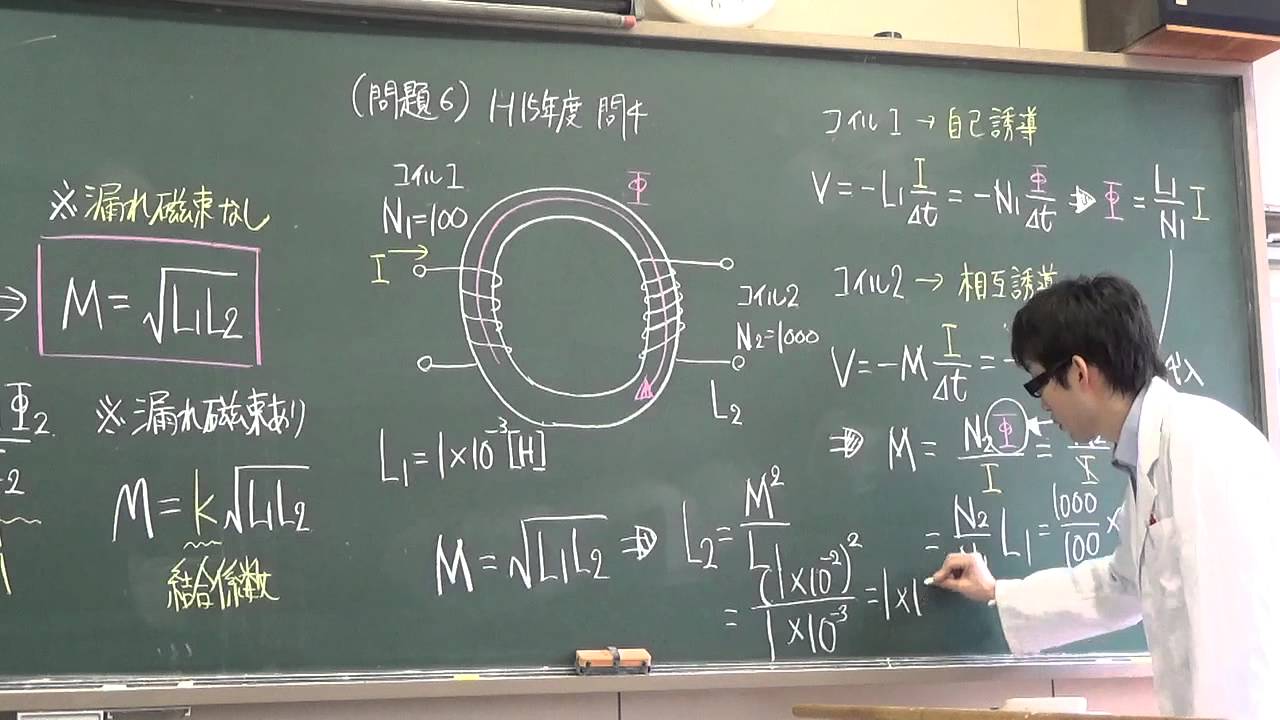 (問題6) H15年度 問4
※漏れ磁束なし
⇒ M=√L₁L₂
Φ₂
※漏れ磁束あり
M=k√L₁L₂
結合係数
コイル1
N₁=100
I →
Φ
コイル2
N₂=1000
L₂
L₁=1×10⁻³[H]
M=√L₁L₂ ⇒ L₂=M²/L₁
=(1×10⁻²)²/1×10⁻³=1×1
コイル1→自己誘導
V=-L₁ I/Δt=-N₁ Φ/Δt ⇒ Φ=L₁/N₁ I
コイル2→相互誘導
V=-M I/Δt=-
代入
⇒ M=N₂Φ/I=
=N₂/N₁ L₁=1000/100×